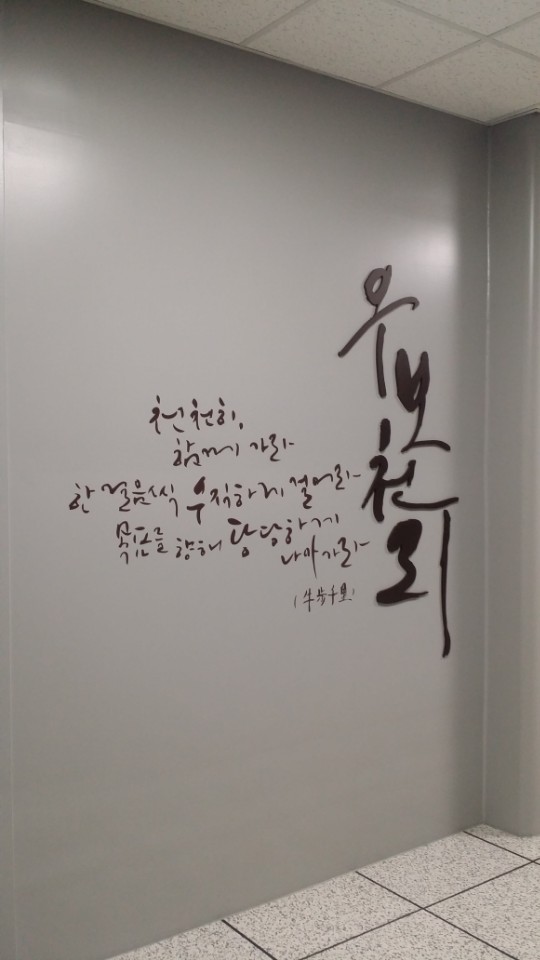 우보천리
천천히,
함께 가라
한 걸음씩 우직하게 걸어라
목표를 향해 당당하게
나아가라
(牛步千里)